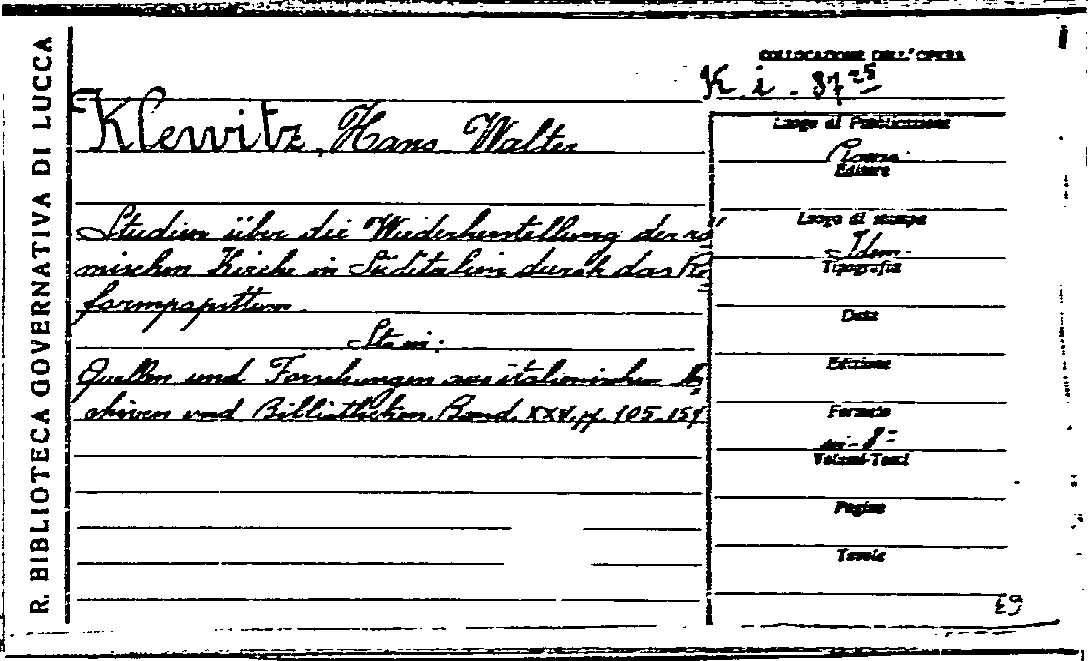 R. BIBLIOTECA GOVERNATIVA DI LUCCA
COLLOCAZIONE DELL'OPERA
K i - 87 25
Klewitz, Hans Walter
Studien über die Wiederherstellung der rö
mischen Kirche in Süditalien durch das Re
formpapsttum.
Sta in:
Quellen und Forschungen aus italienischen Ar
chiven und Bibliotheken. Band. XXV, pp. 105-157
Luogo di Pubblicazione
Roma
Editore
Luogo di stampa
Idem
Tipografia
Data
Edizione
Formato
in-8°
Volumi-Tomi
Pagine
Tavole